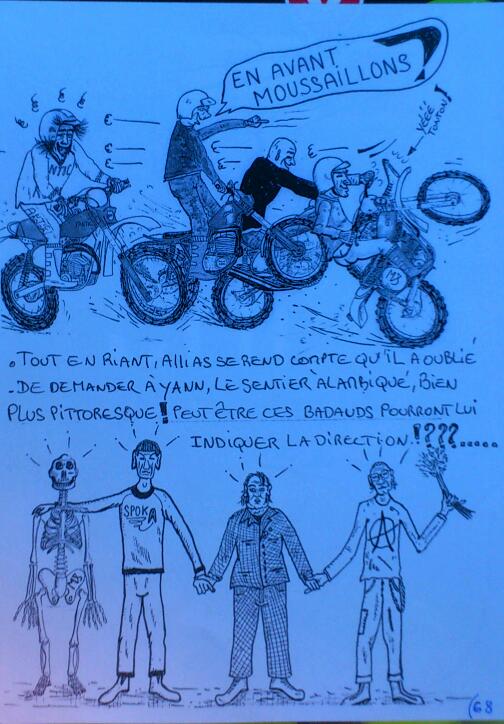 EN AVANT
MOUSSAILLONS
YÉÉÉ
TONTON!
. TOUT EN RIANT, ALLIAS SE REND COMPTE QU'IL A OUBLIÉ
- DE DEMANDER À YANN, LE SENTIER ALAMBIQUÉ, BIEN
PLUS PITTORESQUE! PEUT ÊTRE CES BADAUDS POURRONT LUI
INDIQUER LA DIRECTION.!???.....
SPOK
A
68